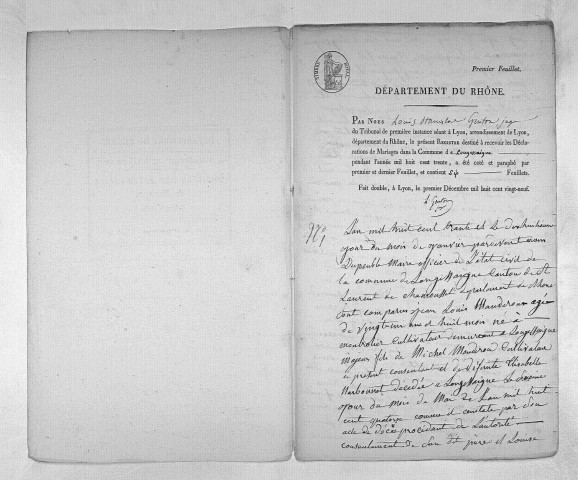 Premier Feuillet.
DÉPARTEMENT DU RHÔNE.
PAR NOUS Louis Stanislas Genton juge
du Tribunal de première instance séant à Lyon, arrondissement de Lyon,
département du Rhône, le présent REGISTRE destiné à recevoir les Décla-
rations de Mariages dans la Commune de Longessaigne
pendant l'année mil huit cent trente, a été coté et paraphé par
premier et dernier Feuillet, et contient Six Feuillets.
Fait double, à Lyon, le premier Décembre mil huit cent vingt-neuf.
Genton
L'an mil huit cent trente et le dixhuitieme
jour du mois de janvier pardevant nous
Dupeuble Maire officier de l'état civil de
la commune de Longessaigne Canton de St
Laurent de Chamousset département du Rhône
sont comparus jean Louis
de vingt un ans et huit mois né à
montrotier Cultivateur demeurant a Longessaigne
majeur fils de Michel Cultivateur
a présent consentant et de défunte
décédée a Longessaigne le
jour du mois de Mai de L'an mil huit
cent quatorze comme il constate par son
acte de décès procédant de L'autorité
consentement de son dit pere et Louise